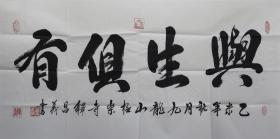 與生俱有
乙未年秋月九龍山極樂寺釋昌義書